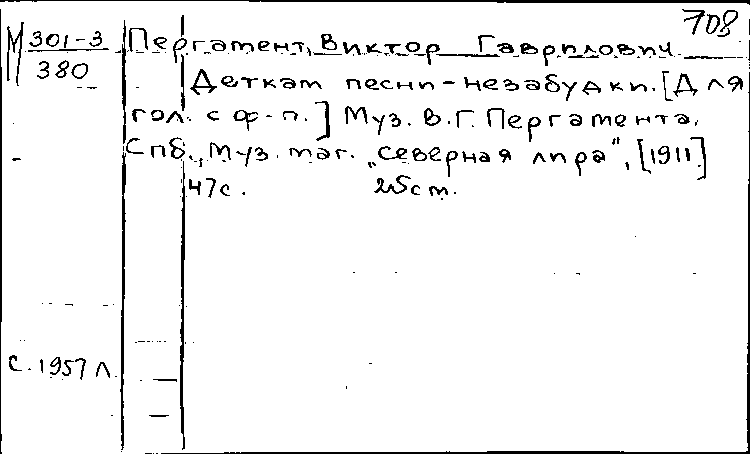 708
М 301-3
380
Пергамент, Виктор Гаврилович.
Деткам песни-незабудки. [Для
гол. с ф-п.] Муз. В.Г. Пергамента.
Спб., Муз. маг. „Северная лира", [1911]
47с. 25см.
С. 1957 Л